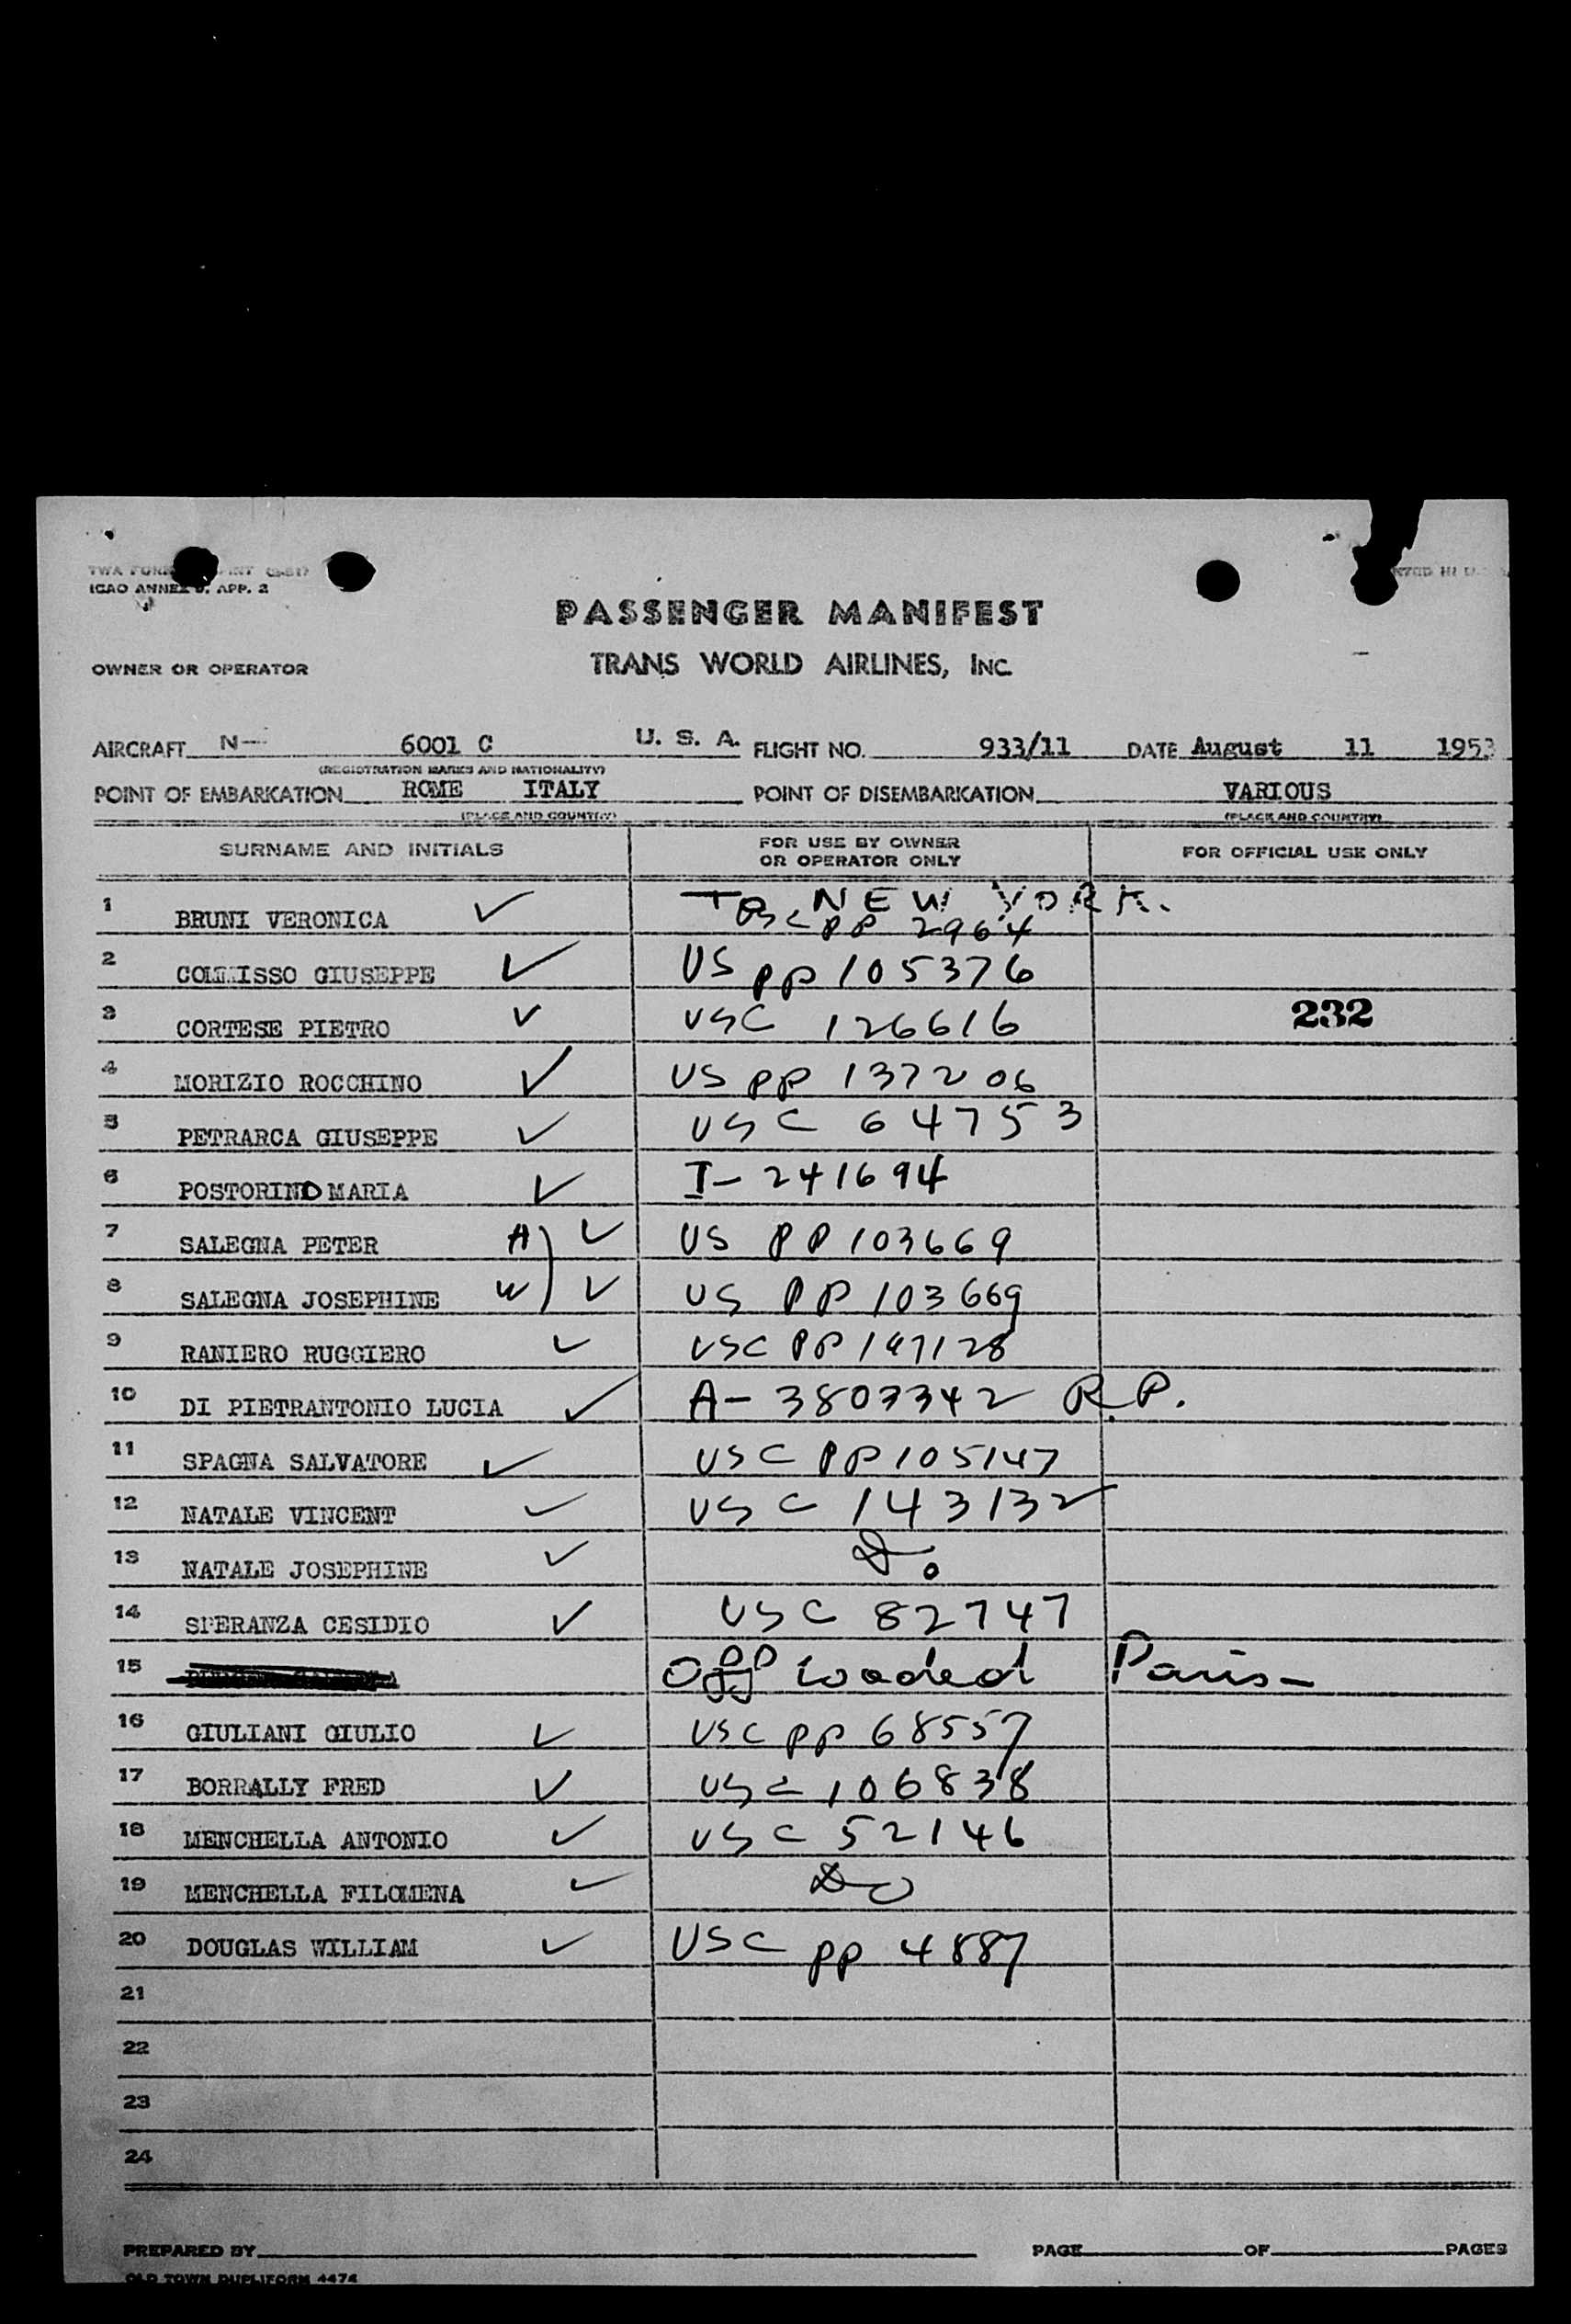 ICAO ANNEX 9, APP. 2
PASSENGER MANIFEST
OWNER OR OPERATOR TRANS WORLD AIRLINES, INC.
AIRCRAFT N- 6001 C U. S. A. FLIGHT NO. 933/11 DATE August 11 1953
(REGISTRATION MARKS AND NATIONALITY)
POINT OF EMBARKATION ROME ITALY POINT OF DISEMBARKATION VARIOUS
(PLACE AND COUNTRY) (PLACE AND COUNTRY)
SURNAME AND INITIALS FOR USE BY OWNER OR OPERATOR ONLY FOR OFFICIAL USE ONLY
To NEW YORK.
1 BRUNI VERONICA ✓ USC PP 2964
2 COMMISSO GIUSEPPE ✓ US pp 105376
3 CORTESE PIETRO ✓ USC 126616 232
4 MORIZIO ROCCHINO ✓ US pp 137206
5 PETRARCA GIUSEPPE ✓ USC 64753
6 POSTORINO MARIA ✓ I- 241694
7 SALEGNA PETER H) ✓ US PP 103669
8 SALEGNA JOSEPHINE W) ✓ US PP 103669
9 RANIERO RUGGIERO ✓ USC PP 147128
10 DI PIETRANTONIO LUCIA ✓ A- 3803342 R.P.
11 SPAGNA SALVATORE ✓ USC PP 105147
12 NATALE VINCENT ✓ USC 143132
13 NATALE JOSEPHINE ✓ Do
14 SPERANZA CESIDIO ✓ USC 82747
15 Off loaded Paris-
16 GIULIANI GIULIO ✓ USC pp 68557
17 BORRALLY FRED ✓ USC 106838
18 MENCHELLA ANTONIO ✓ USC 52146
19 MENCHELLA FILOMENA ✓ Do
20 DOUGLAS WILLIAM ✓ USC pp 4887
21
22
23
24
PREPARED BY PAGE OF PAGES
OLD TOWN DUPLIFORM 4474